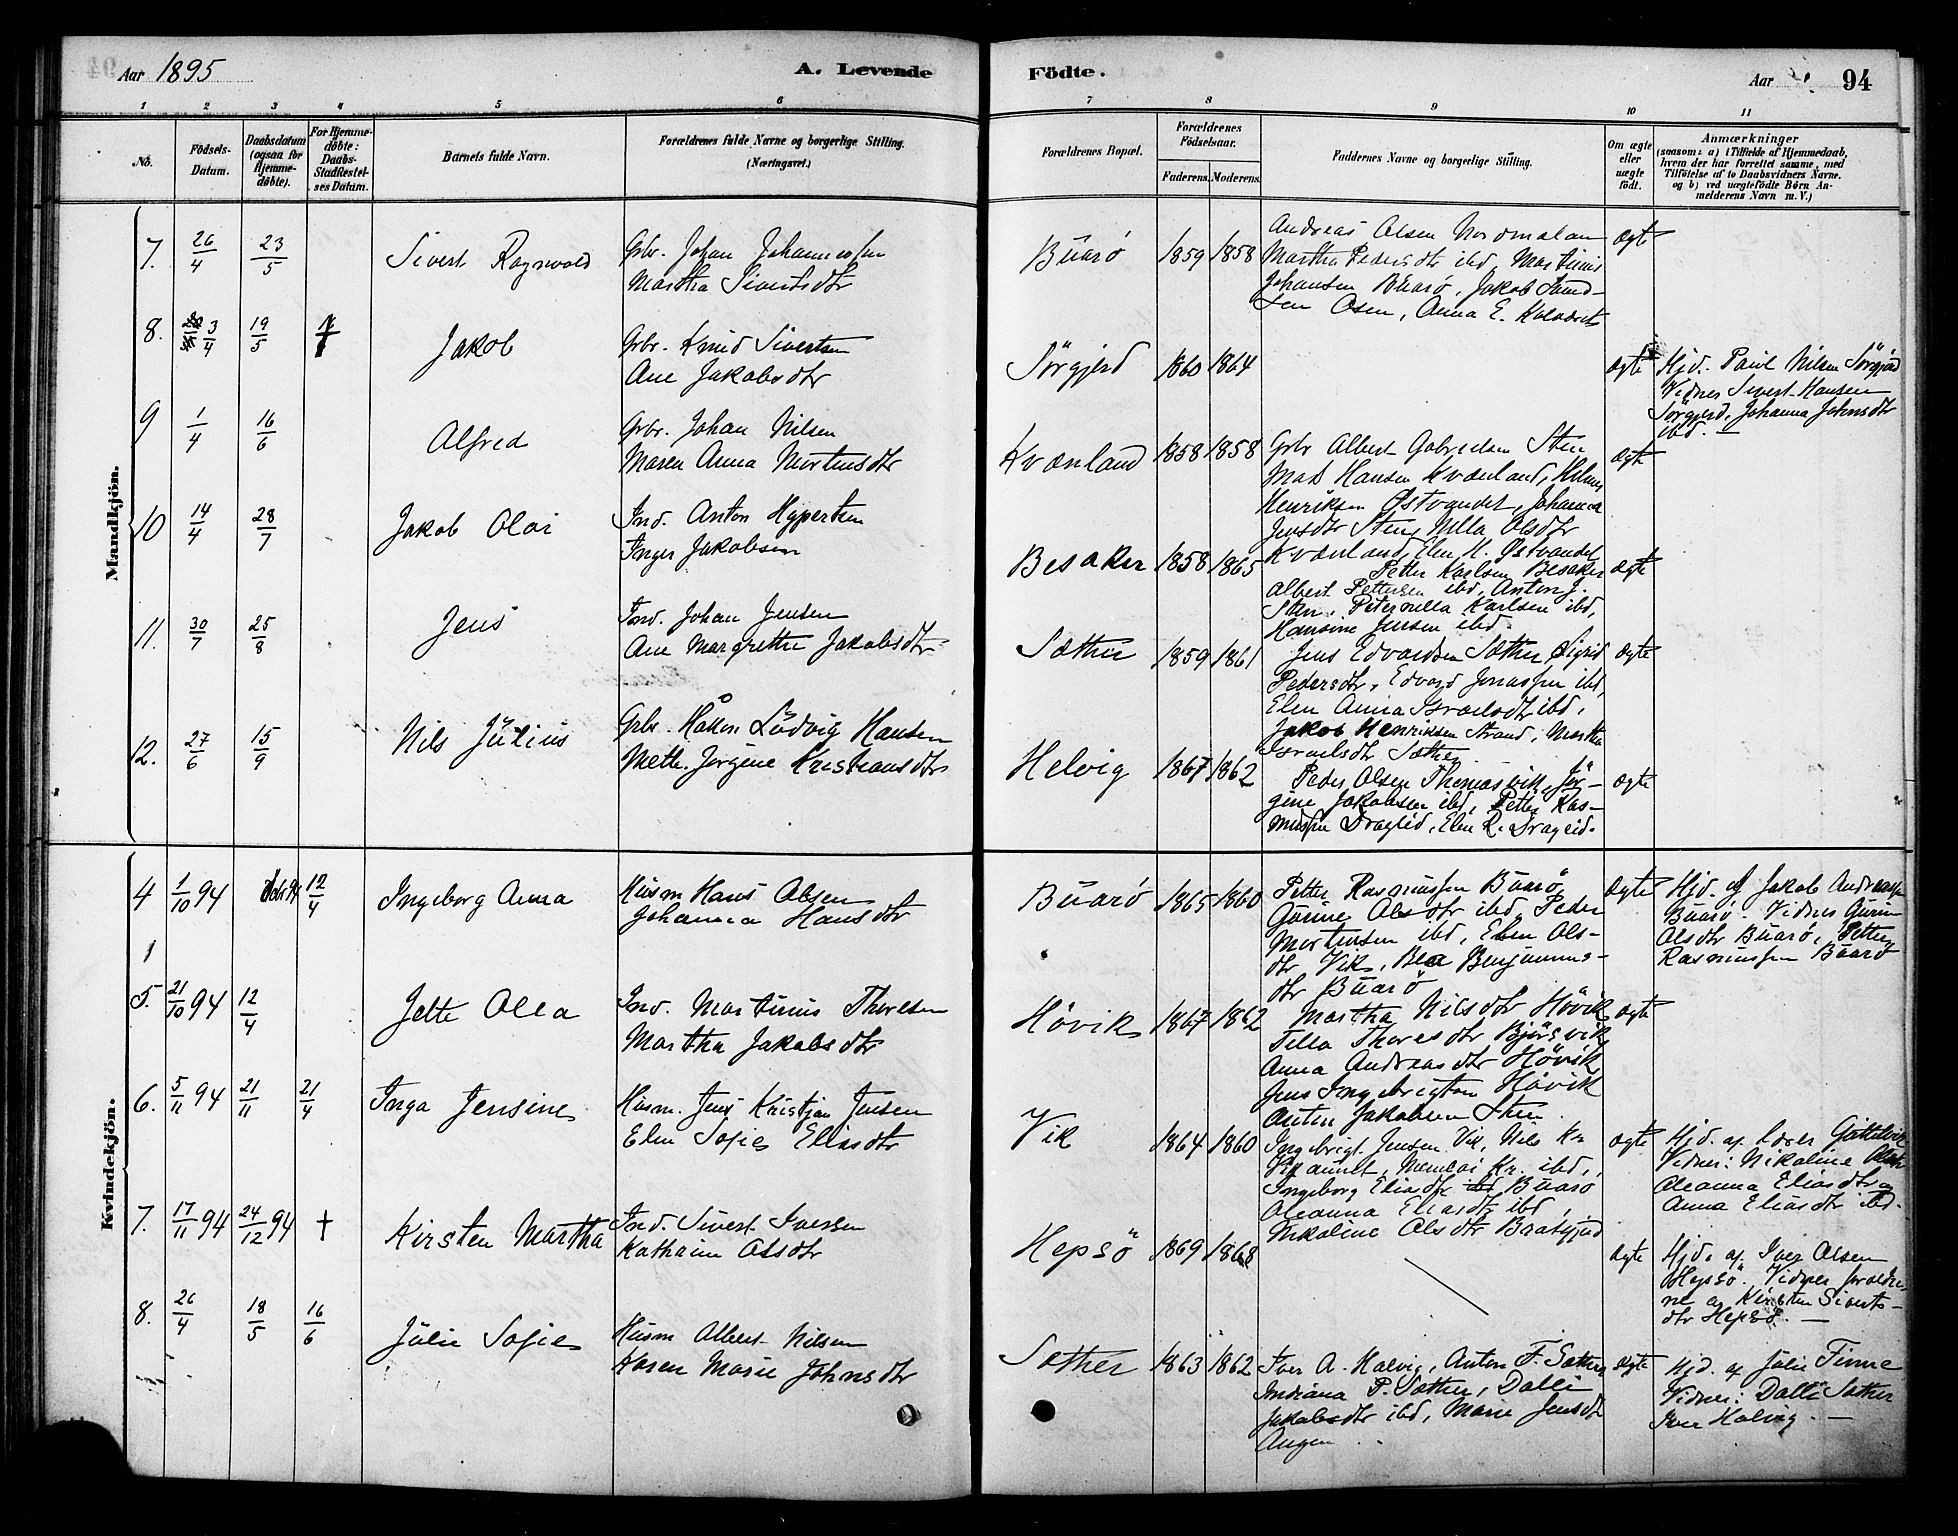 Aar 1895
A. Levende
Födte.
Aar
94
1 2 3 4 5 6 7 8 9 10 11
No.
Födsels-Datum.
Daabsdatum (ogsaa for Hjemme-döbte).
For Hjemme-döbte: Daabs-Stadfæstel-ses Datum.
Barnets fulde Navn.
Forældrenes fulde Navne og borgerlige Stilling.
(Næringsvei.)
Forældrenes Bopæl.
Forældrenes Födselsaar.
Faderens. Moderens.
Faddernes Navne og borgerlige Stilling.
Om ægte eller uægte födt.
Anmærkninger
(saasom: a) i Tilfælde af Hjemmedaab,
hvem der har forrettet samme, med
Tilföielse af to Daabsvidners Navne.
og b) ved uægtefödte Börn An-
melderens Navn m. V.)
Mandkjön.
7. 26/4 23/5 Sivert Ragnvald
Gbr. Johan Johannessen
Martha Sivertsdtr
Buarö 1859 1858
Andreas Olsen Nordmalan
Martha Pedersdtr ibd, Martinus
Johansen Buarö, Jakob
Osen, Anna E.
Ægte
8. 3/4 19/5 † Jakob
Gbr. Knud Sivertsen
Ane Jakobsdtr
Sörgjerd 1860 1864
ægte
Hjd. Paul Nilsen Sörgjerd
Vidner Sivert Hansen
Sörgjerd, Johanna Johnsdtr
ibd. —
9 1/4 16/6 Alfred
Gbr. Johan Nilsen
Maren Anna Mortensdtr
Kvænland 1858 1858
Gbr Albert Gabrielsen Sten
Mas Hansen Kvænland,
Henriksen Østvandet, Johanna
Jensdtr Sten, Nilla Olsdtr
Kvænland, Elen H. Østvandet
ægte
10 14/4 28/7 Jakob Olai
Ind. Anton Hypertsen
Inger Jakobsen
Besaker 1858 1865
Petter Karlsen Besaker
Albert Pettersen ibd, Anton J.
Sten, Peternella Karlsen ibd,
Hansine Jensen ibd.
ægte
11. 30/7 25/8 Jens
Ind. Johan Jensen
Ane Margrethe Jakobsdtr
Sæther 1859 1861
Jens Edvardsen Sæther Sigrid
Pedersdtr, Edvard Jonassen ibd,
Elen Anna Israelsdtr ibd,
Jakob Henriksen Strand, Martha
Israelsdtr Sæther
ægte
12. 27/6 15/9 Nils Julius
Gbr. Håkon Ludvig Hansen
Meth. Jörgine Kristiansdtr
Helvig 1867 1862
Peder Olsen Thomasvik, Jör-
gine Jakobsen ibd, Petter Ras-
mussen Drageid, Elen R. Drageid.
ægte
Kvindekjön.
4 1/10 94 12/4 Ingeborg Anna
Husm Hans Olsen
Johanna Hansdtr
Buarö 1865 1860
Petter Rasmussen Buarö,
Gurine Olsdtr ibd, Peder
Mortensen ibd, Elen Ols-
dtr Vik, Bea Benjamins-
dtr Buarö
ægte
Hjd. af Jakob Andreassen
Buarö. Vidner Gurine
Olsdtr Buarö, Petter
Rasmussen Buarö
1
5. 21/10 94 12/4 Jette Olea
Ind. Martinus Thoresen
Martha Jakobsdtr
Hövik 1867 1862
Martha Nilsdtr Hövik
Thoresdtr Björsvik
Anna Andreasdtr Hövik
Jens Ingebrigtsen Hövik
Anton Jakobsen Sten.
ægte
6. 5/11 94 21/11 21/4 Inga Jensine
Husm. Jens Kristjan Jensen
Elen Sofie Eliasdtr
Vik 1864 1860
Ingebrigt Jensen Vik, Nils Kr.
Kr. ibd,
Ingeborg Eliasdtr Buarö
Oleanna Eliasdtr ibd,
Nikoline Olsdtr
ægte
Hjd. af Lærer
Vidner: Nikoline
Oleanna Eliasdtr og
Anna Eliasdtr ibd.
7. 17/11 94 24/12 94 † Kirsten Martha
Ind. Sivert Iversen
Olsdtr
Hepsö 1869 1868
ægte
Hjd. af Iver Olsen
Hepsö. Vidner foreldre-
ne og Kirsten Siverts-
dtr Hepsö. —
8. 26/4 18/5 16/6 Julie Sofie
Husm Albert Nilsen
Karen Marie Johnsdtr
Sæther 1863 1862
Iver A. Halvig, Anton F. Sæther
Indiana P. Sæther, Dalli
Jakobsdtr ibd, Marie Jensdtr
Angen
ægte
Hjd. af Julie Finne
Vidner: Dalli Sæther
Iver Halvig. —